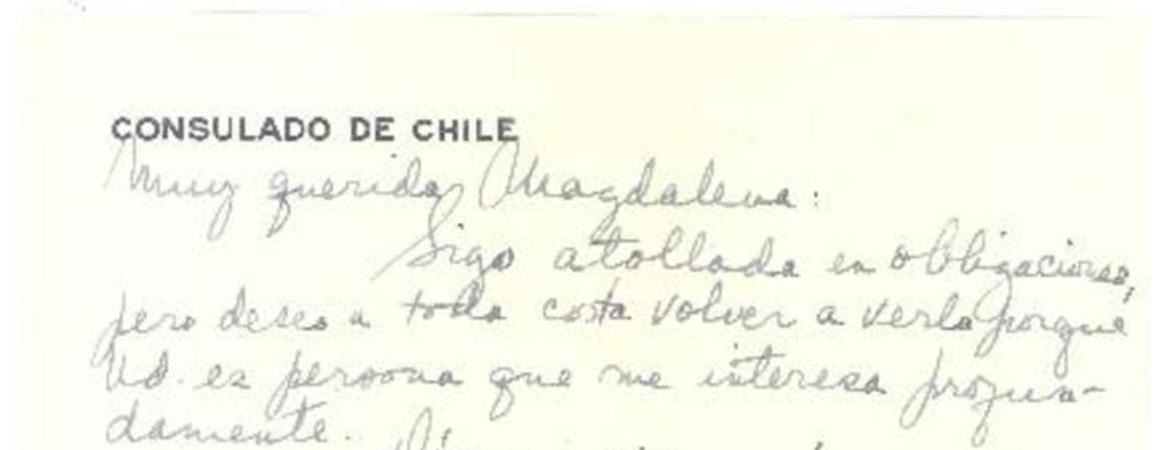 CONSULADO DE CHILE
Muy querida Magdalena:
Sigo atollada en obligaciones,
pero deseo a toda costa volver a verla porque
Ud. es persona que me interesa profun-
damente.